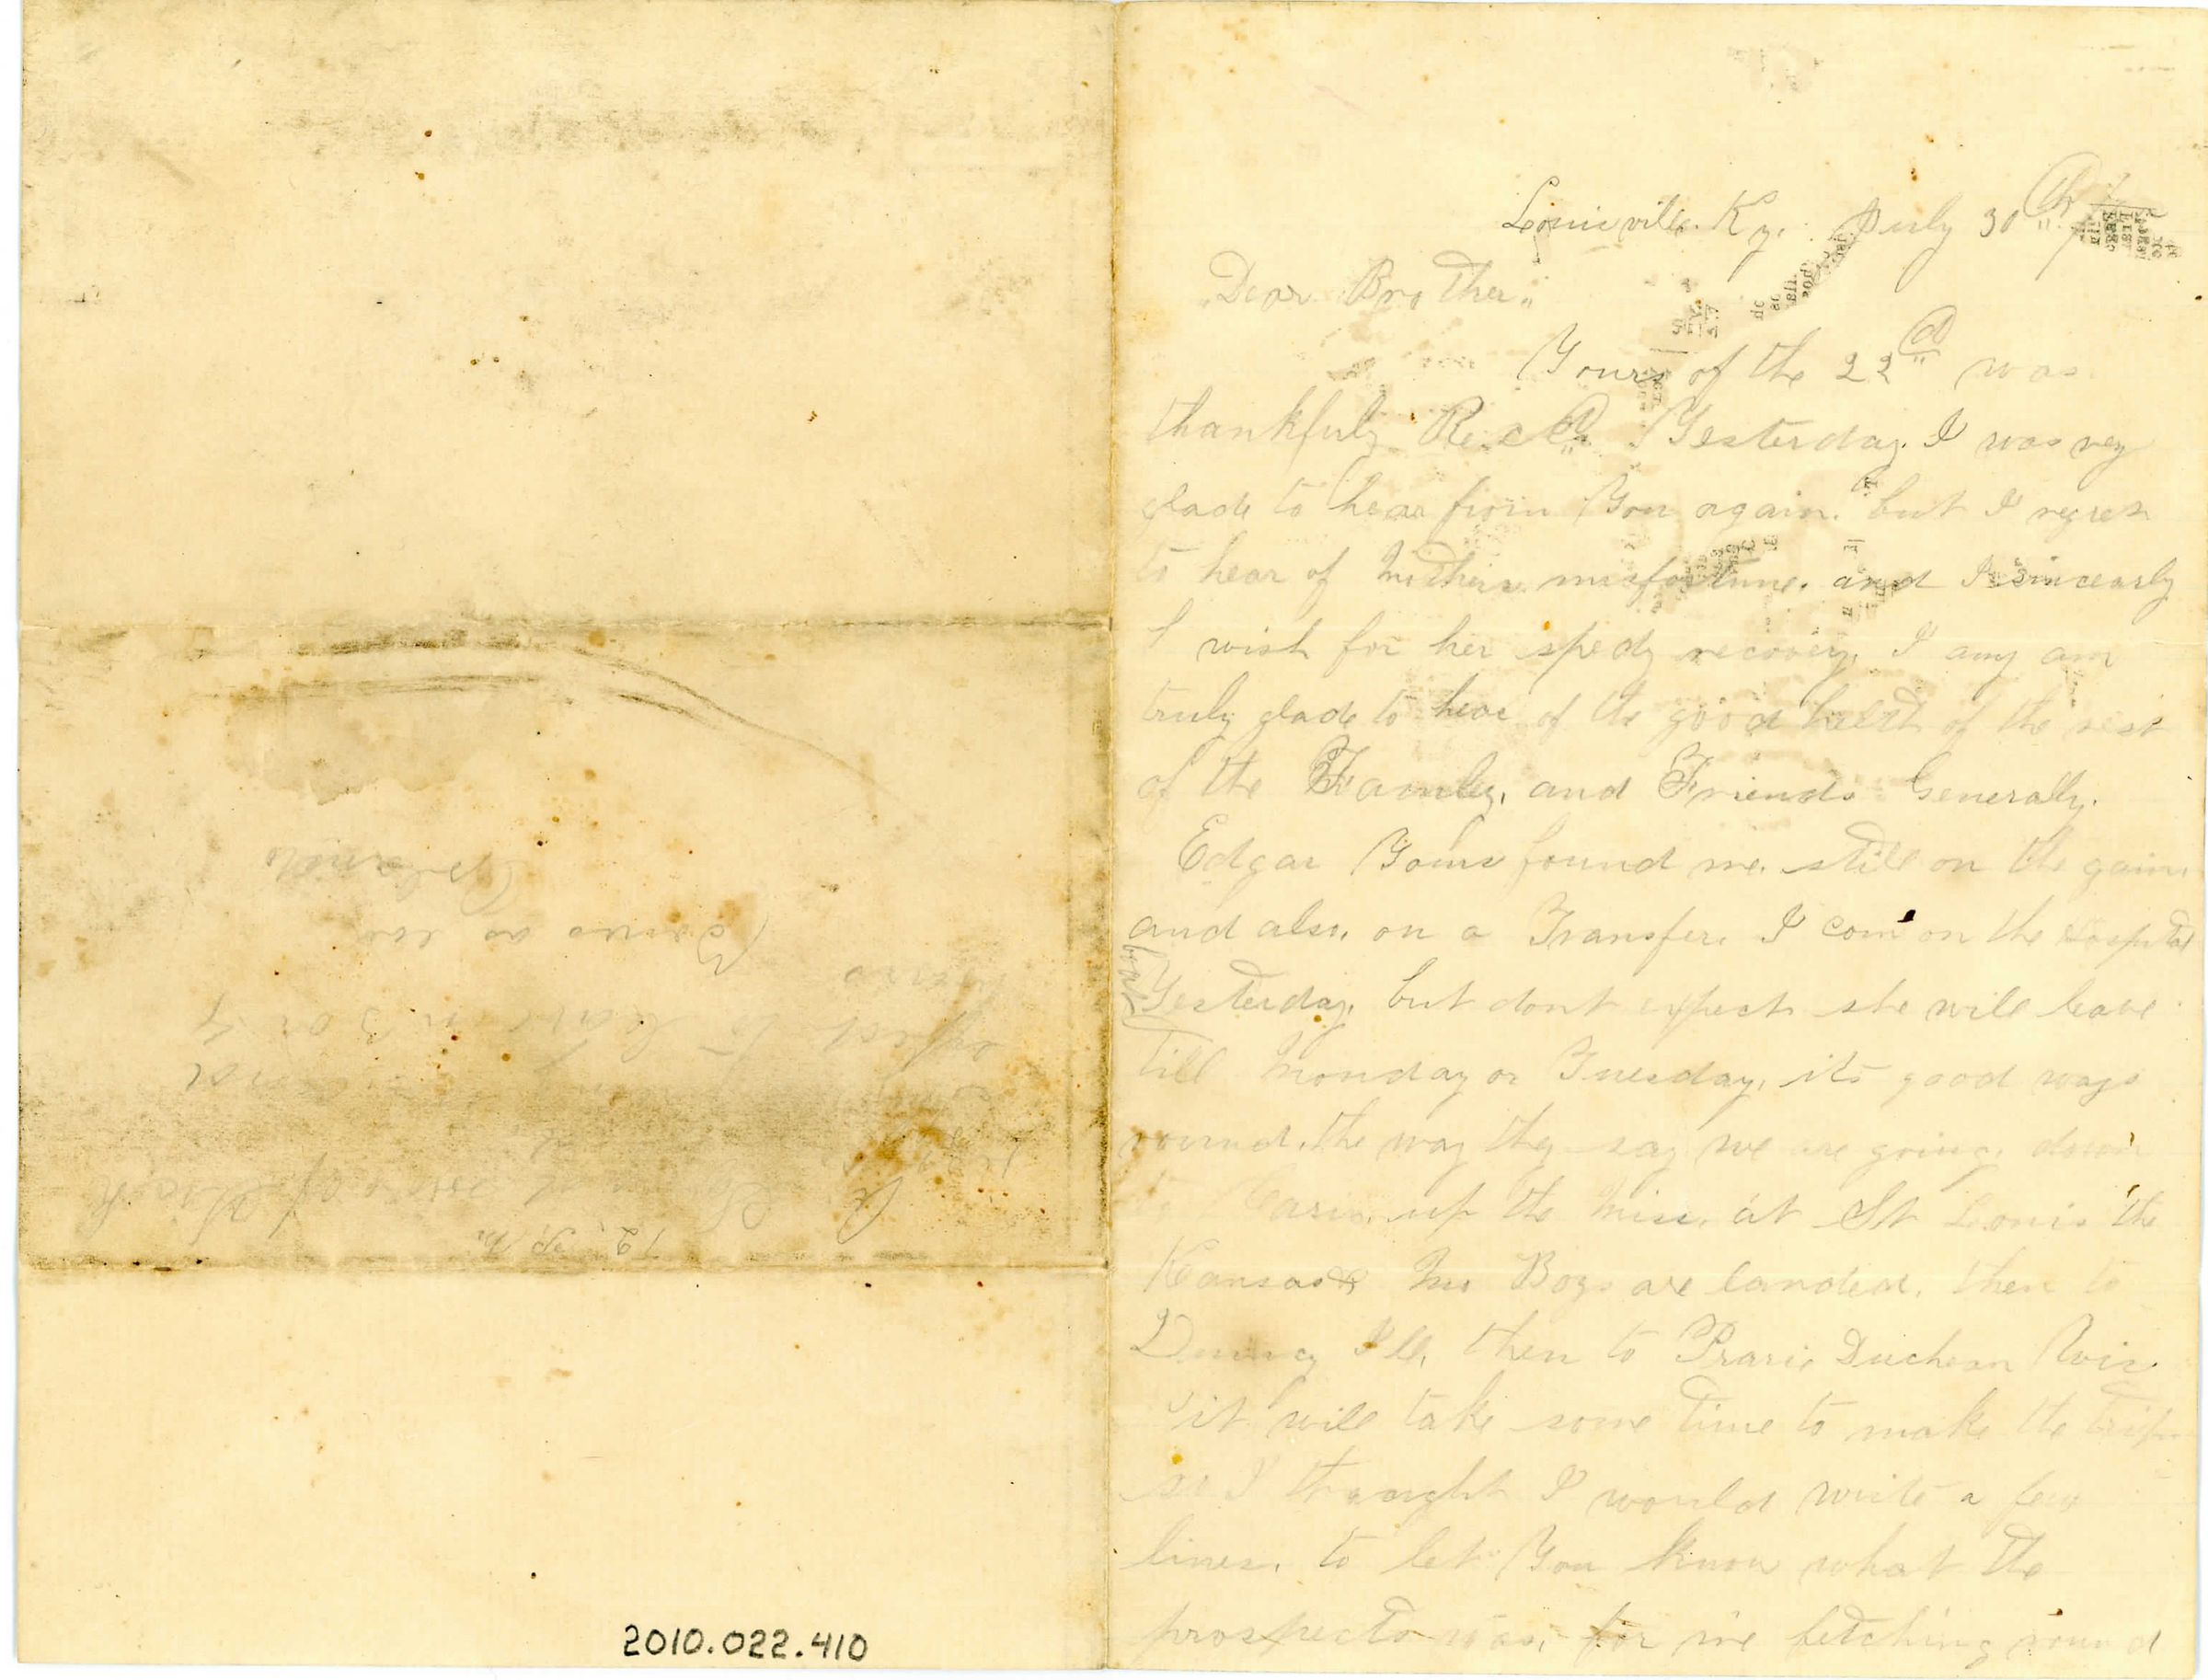 Louisville. Ky. July 30th
Dear Brother,
Yours of the 22d was
thankfuly Recd Yesterday. I was very
glade to hear from You again. but I regret
to hear of Mothers misfortune. and I sincearly
I wish for her spedy recovery. I amy am
truly glade to hear of the good helth of the rest
of the Famley. and Friends Generally.
Edgar Yours found me. still on the gain.
and also. on a Transfer. I com on the Hospital
boat
Yesterday. but dont expect she will leave
till Monday or Tuesday, its good ways
round. the way they say we are going. down
to Cario. up the Miss. at St Louis the
Kansas & Mo Boys are landed. then to
Ill. then to Prarie Duchean Wis.
it will take some time to make the trip
so I thought I would write a few
lines. to let You know what the
prospects was. for me fetching round
12, P, M.
A
expect to leave in 3 or 4
hours
Edward
2010.022.410